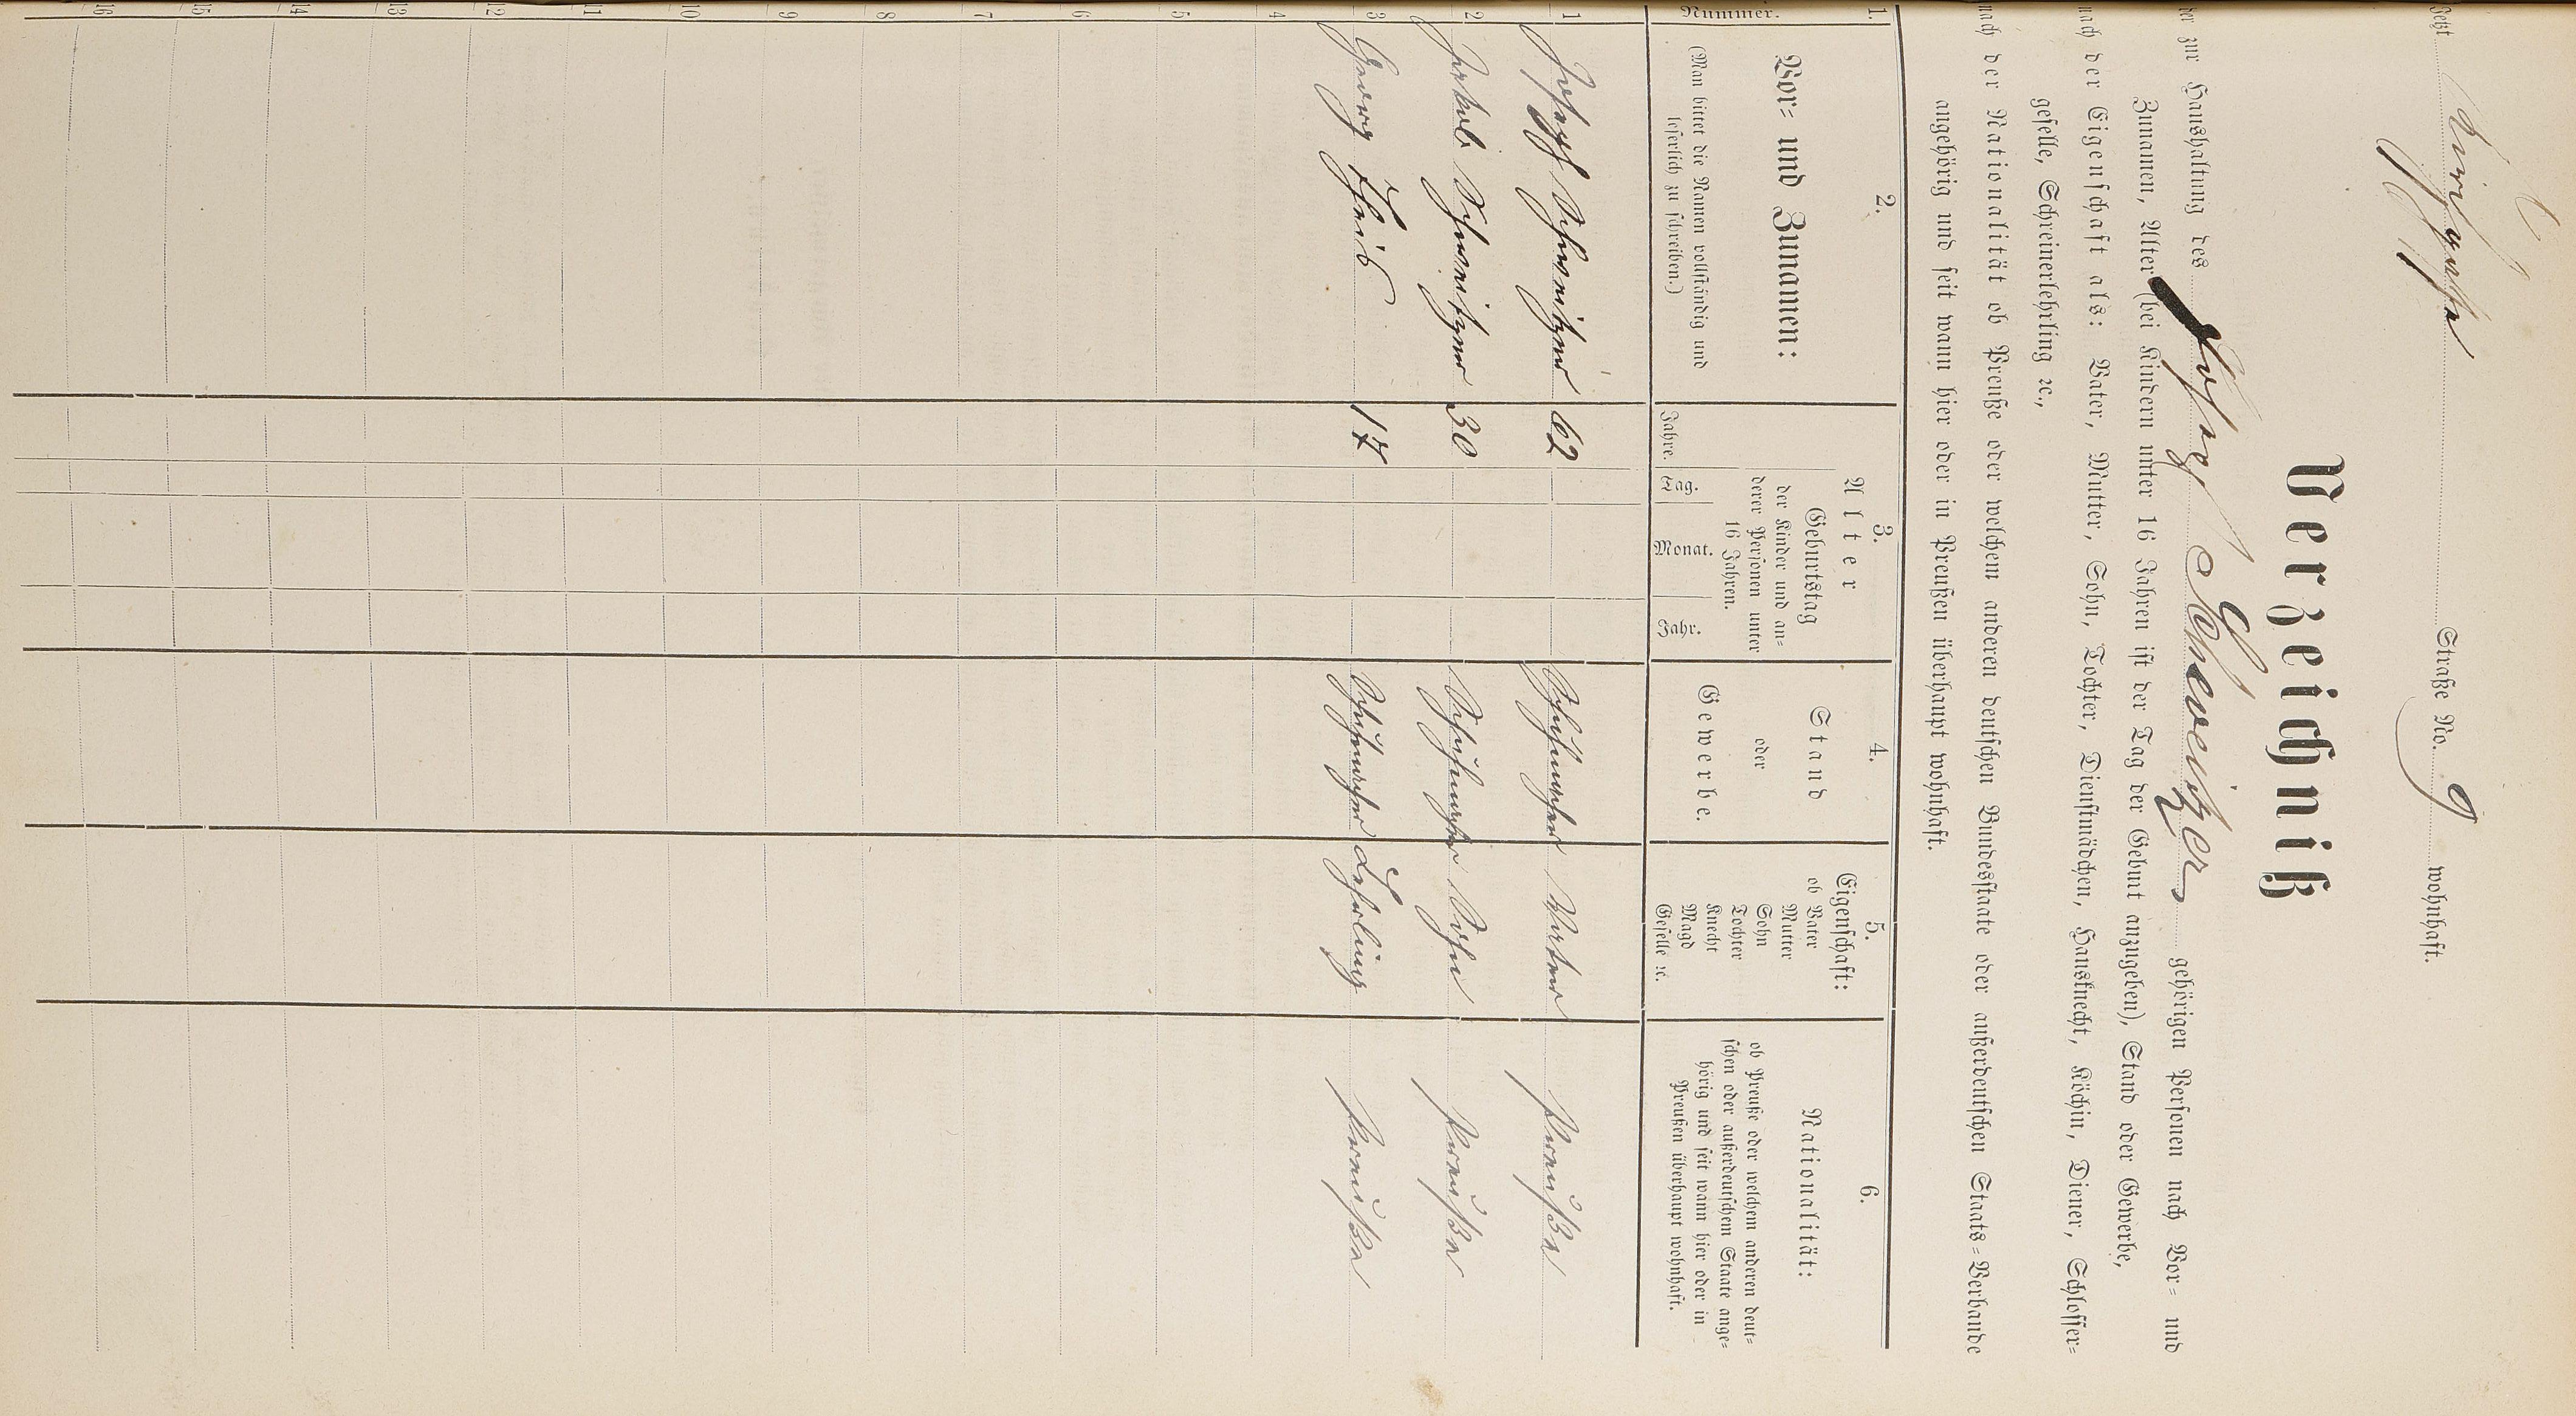 Jetzt Kirchgasse Straße No. 9 wohnhaft.
Verzeichniß
der zur Haushaltung des Joseph Schweitzer gehörigen Personen nach Vor- und
Zunamen, Alter (bei Kindern unter 16 Jahren ist der Tag der Geburt anzugeben), Stand oder Gewerbe,
nach der Eigenschaft als: Vater, Mutter, Sohn, Tochter, Dienstmädchen, Hausknecht, Köchin, Diener, Schlosser-
geselle, Schreinerlehrling ꝛc.,
nach der Nationalität ob Preuße oder welchem anderen deutschen Bundesstaate oder außerdeutschen Staats-Verbande
angehörig und seit wann hier oder in Preußen überhaupt wohnhaft.
1. 2. 3. 4. 5. 6.
Nummer.
Vor- und Zunamen:
(Man bittet die Namen vollständig und
leserlich zu schreiben.)
Alter
Geburtstag
der Kinder und an-
derer Personen unter
16 Jahren.
Jahre. Tag. Monat. Jahr.
Stand
oder
Gewerbe.
Eigenschaft:
ob Vater
Mutter
Sohn
Tochter
Knecht
Magd
Geselle ꝛc.
Nationalität:
ob Preuße oder welchem anderen deut-
schen oder außerdeutschem Staate ange-
hörig und seit wann hier oder in
Preußen überhaupt wohnhaft.
1 Joseph Schweitzer 62 Schuhmacher Vater Preuße
2 Jakob Schweitzer 30 Schuhmacher Sohn Preuße
3 Georg 17 Schuhmacher Lehrling Preuße
4
5
6
7
8
9
10
11
12
13
14
15
16